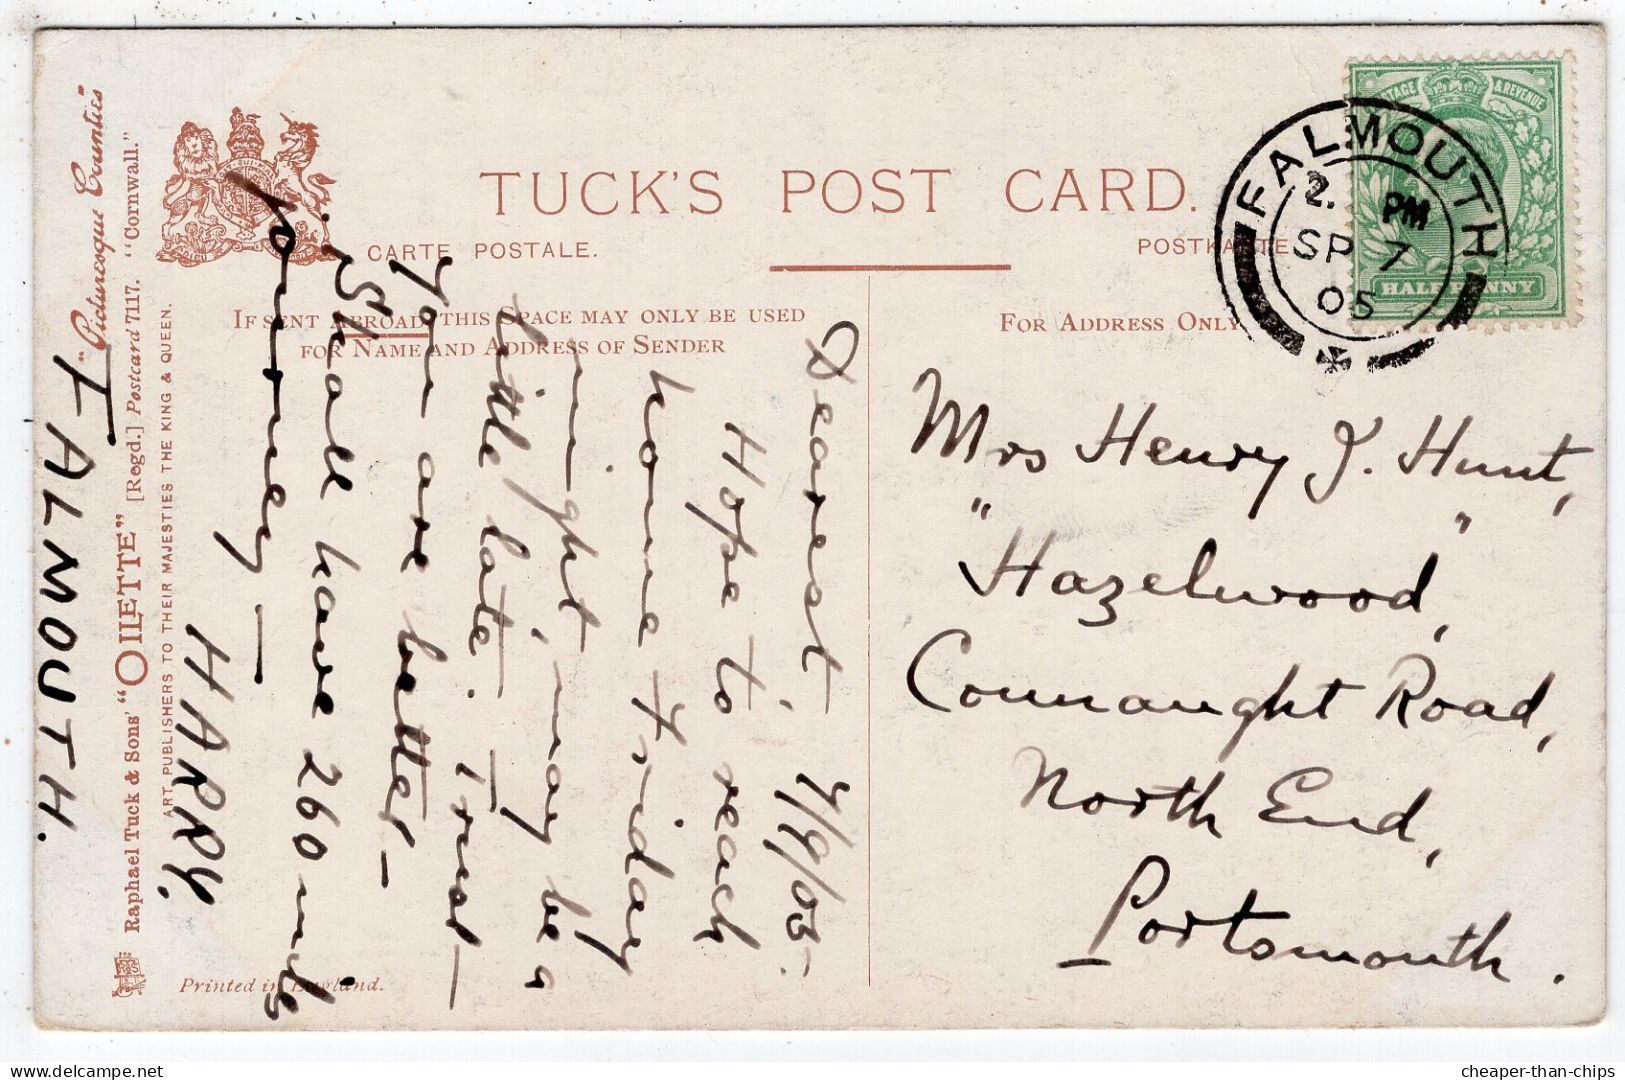 TUCK'S POST CARD.
CARTE POSTALE.
POSTKARTE
IF SENT ABROAD, THIS SPACE MAY ONLY BE USED
FOR NAME AND ADDRESS OF SENDER
FOR ADDRESS ONLY
POSTAGE & REVENUE
HALFPENNY
FALMOUTH
2. PM
SP 7
05
Mrs Henry J. Hunt,
"Hazelwood,"
Connaught Road,
North End,
Portsmouth.
7/9/05.
Dearest,
Hope to reach
home Friday
night, may be a
little late. Trust
you are better -
Shall have 260 mile
journey -
HARRY.
FALMOUTH.
"Picturesque Counties"
Raphael Tuck & Sons' "OILETTE" [Regd.] Postcard 7117. "Cornwall."
ART PUBLISHERS TO THEIR MAJESTIES THE KING & QUEEN.
Printed in England.
cheaper-than-chips